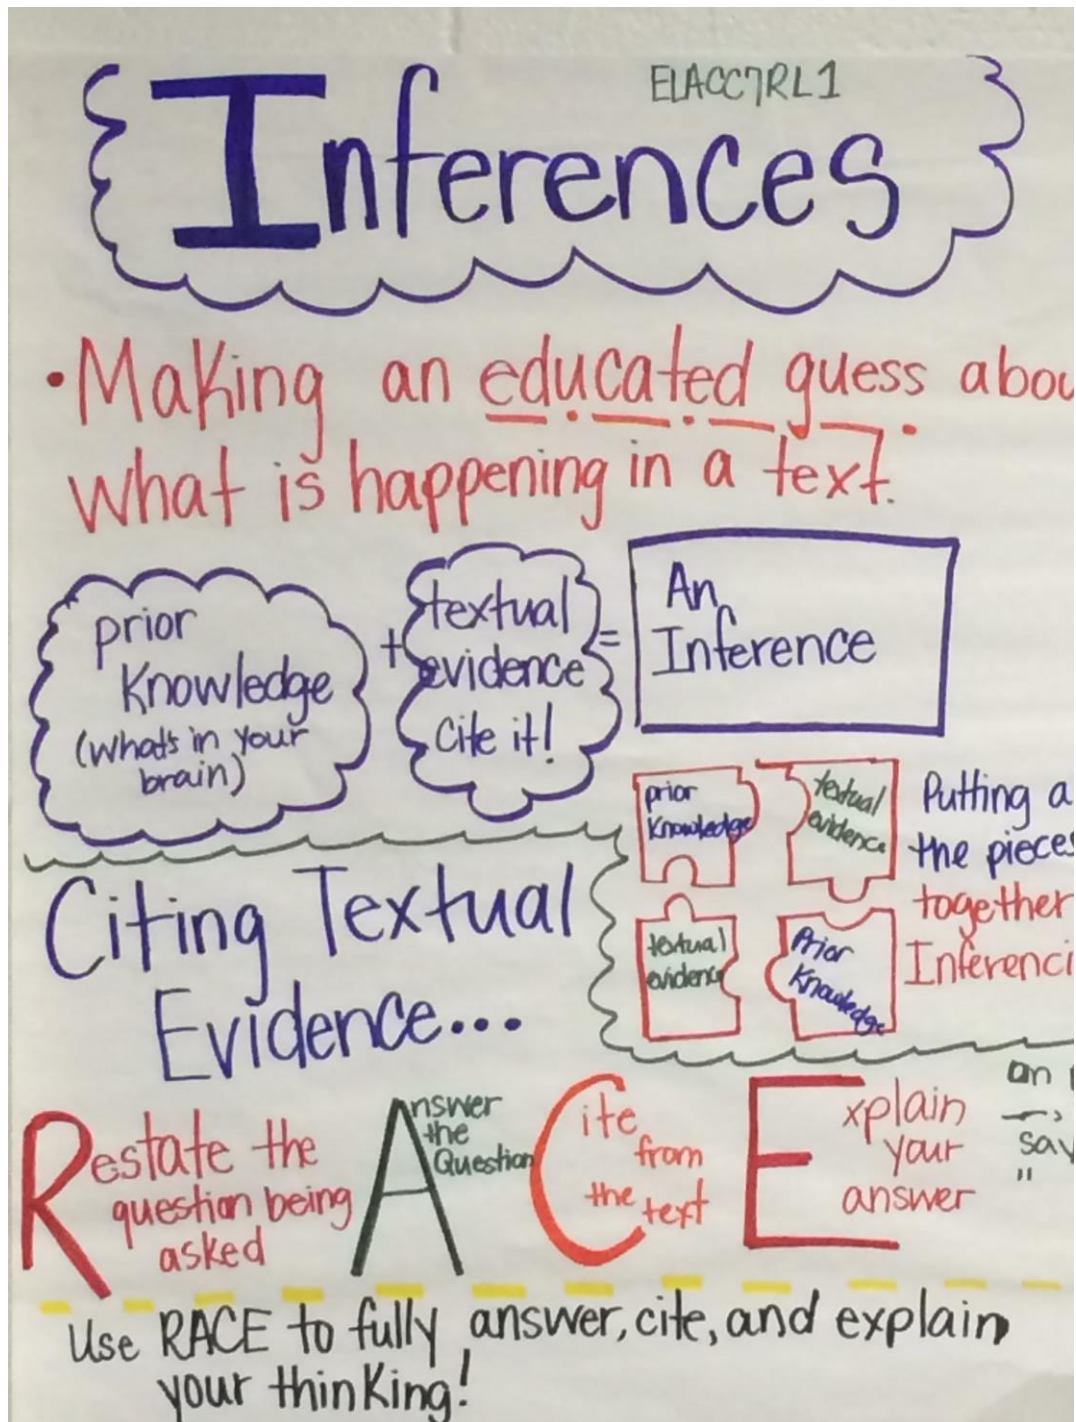 ELACC7RL1
Inferences
• Making an educated guess abou
what is happening in a text.
prior
Knowledge
(What's in your
brain)
+
textual
evidence
cite it!
=
An
Inference
prior
Knowledge
textual
evidence
textual
evidence
Prior
Knowledge
Putting a
the pieces
together
Inferenci
Citing Textual
Evidence...
Restate the
question being
asked
Answer
the
Question
Cite
from
the text
Explain
your
answer
on
say
"
Use RACE to fully answer, cite, and explain
your thinking!